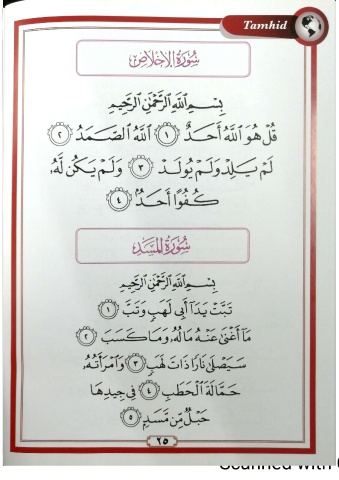 Tamhid
سُورَةُ الإِخْلَاصِ
بِسْمِ ٱللَّهِ ٱلرَّحْمَٰنِ ٱلرَّحِيمِ
قُلْ هُوَ ٱللَّهُ أَحَدٌ ١ ٱللَّهُ ٱلصَّمَدُ ٢
لَمْ يَلِدْ وَلَمْ يُولَدْ ٣ وَلَمْ يَكُن لَّهُۥ
كُفُوًا أَحَدٌۢ ٤
سُورَةُ المَسَدِ
بِسْمِ ٱللَّهِ ٱلرَّحْمَٰنِ ٱلرَّحِيمِ
تَبَّتْ يَدَآ أَبِى لَهَبٍ وَتَبَّ ١
مَآ أَغْنَىٰ عَنْهُ مَالُهُۥ وَمَا كَسَبَ ٢
سَيَصْلَىٰ نَارًا ذَاتَ لَهَبٍ ٣ وَٱمْرَأَتُهُۥ
حَمَّالَةَ ٱلْحَطَبِ ٤ فِى جِيدِهَا
حَبْلٌ مِّن مَّسَدٍۭ ٥
٢٥
Scanned with